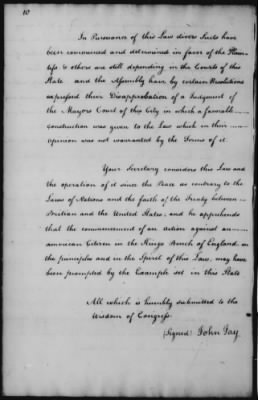 10
In Pursuance of this Law divers Suits have
been commenced and determined in favor of the Plain-
tifs & others are still depending in the Courts of this
State and the Assembly have by certain Resolutions
expressed their Disapprobation of a Judgement of
the Mayors Court of this City in which a favorable
construction was given to the Law which in their
opinion was not warranted by the Terms of it.
Your Secretary considers this Law and
the operation of it since the Peace as contrary to the
Laws of Nations and the faith of the Treaty between
Britain and the United States, and he apprehends
that the commencement of an action against an
american Citizen in the Kings Bench of England, on
the principles and in the Spirit of this Law, may have
been prompted by the Example set in this State
All which is humbly submitted to the
Wisdom of Congress.
(Signed) John Jay